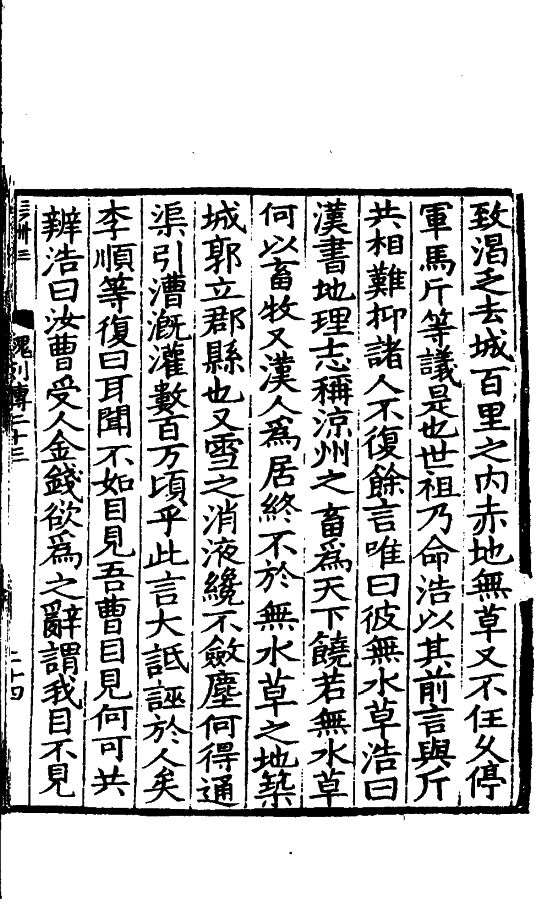 致渴乏去城百里之内赤地無草又不任久停
軍馬斤等議是也世祖乃命浩以其前言與斤
共相難抑諸人不復餘言唯曰彼無水草浩曰
漢書地理志稱涼州之畜爲天下饒若無水草
何以畜牧又漢人爲居終不於無水草之地築
城郭立郡縣也又雪之消液纔不斂塵何得通
渠引漕漑灌數百万頃乎此言大詆誣於人矣
李順等復曰耳聞不如目見吾曹目見何可共
辨浩曰汝曹受人金錢欲爲之辭謂我目不見
列傳二十三
二十四